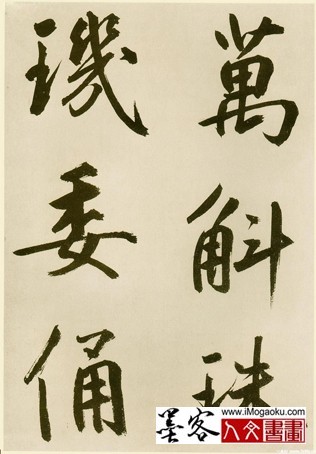 萬斛珠
璣委俑
www.iMogaoku.com
墨客
人文書畫